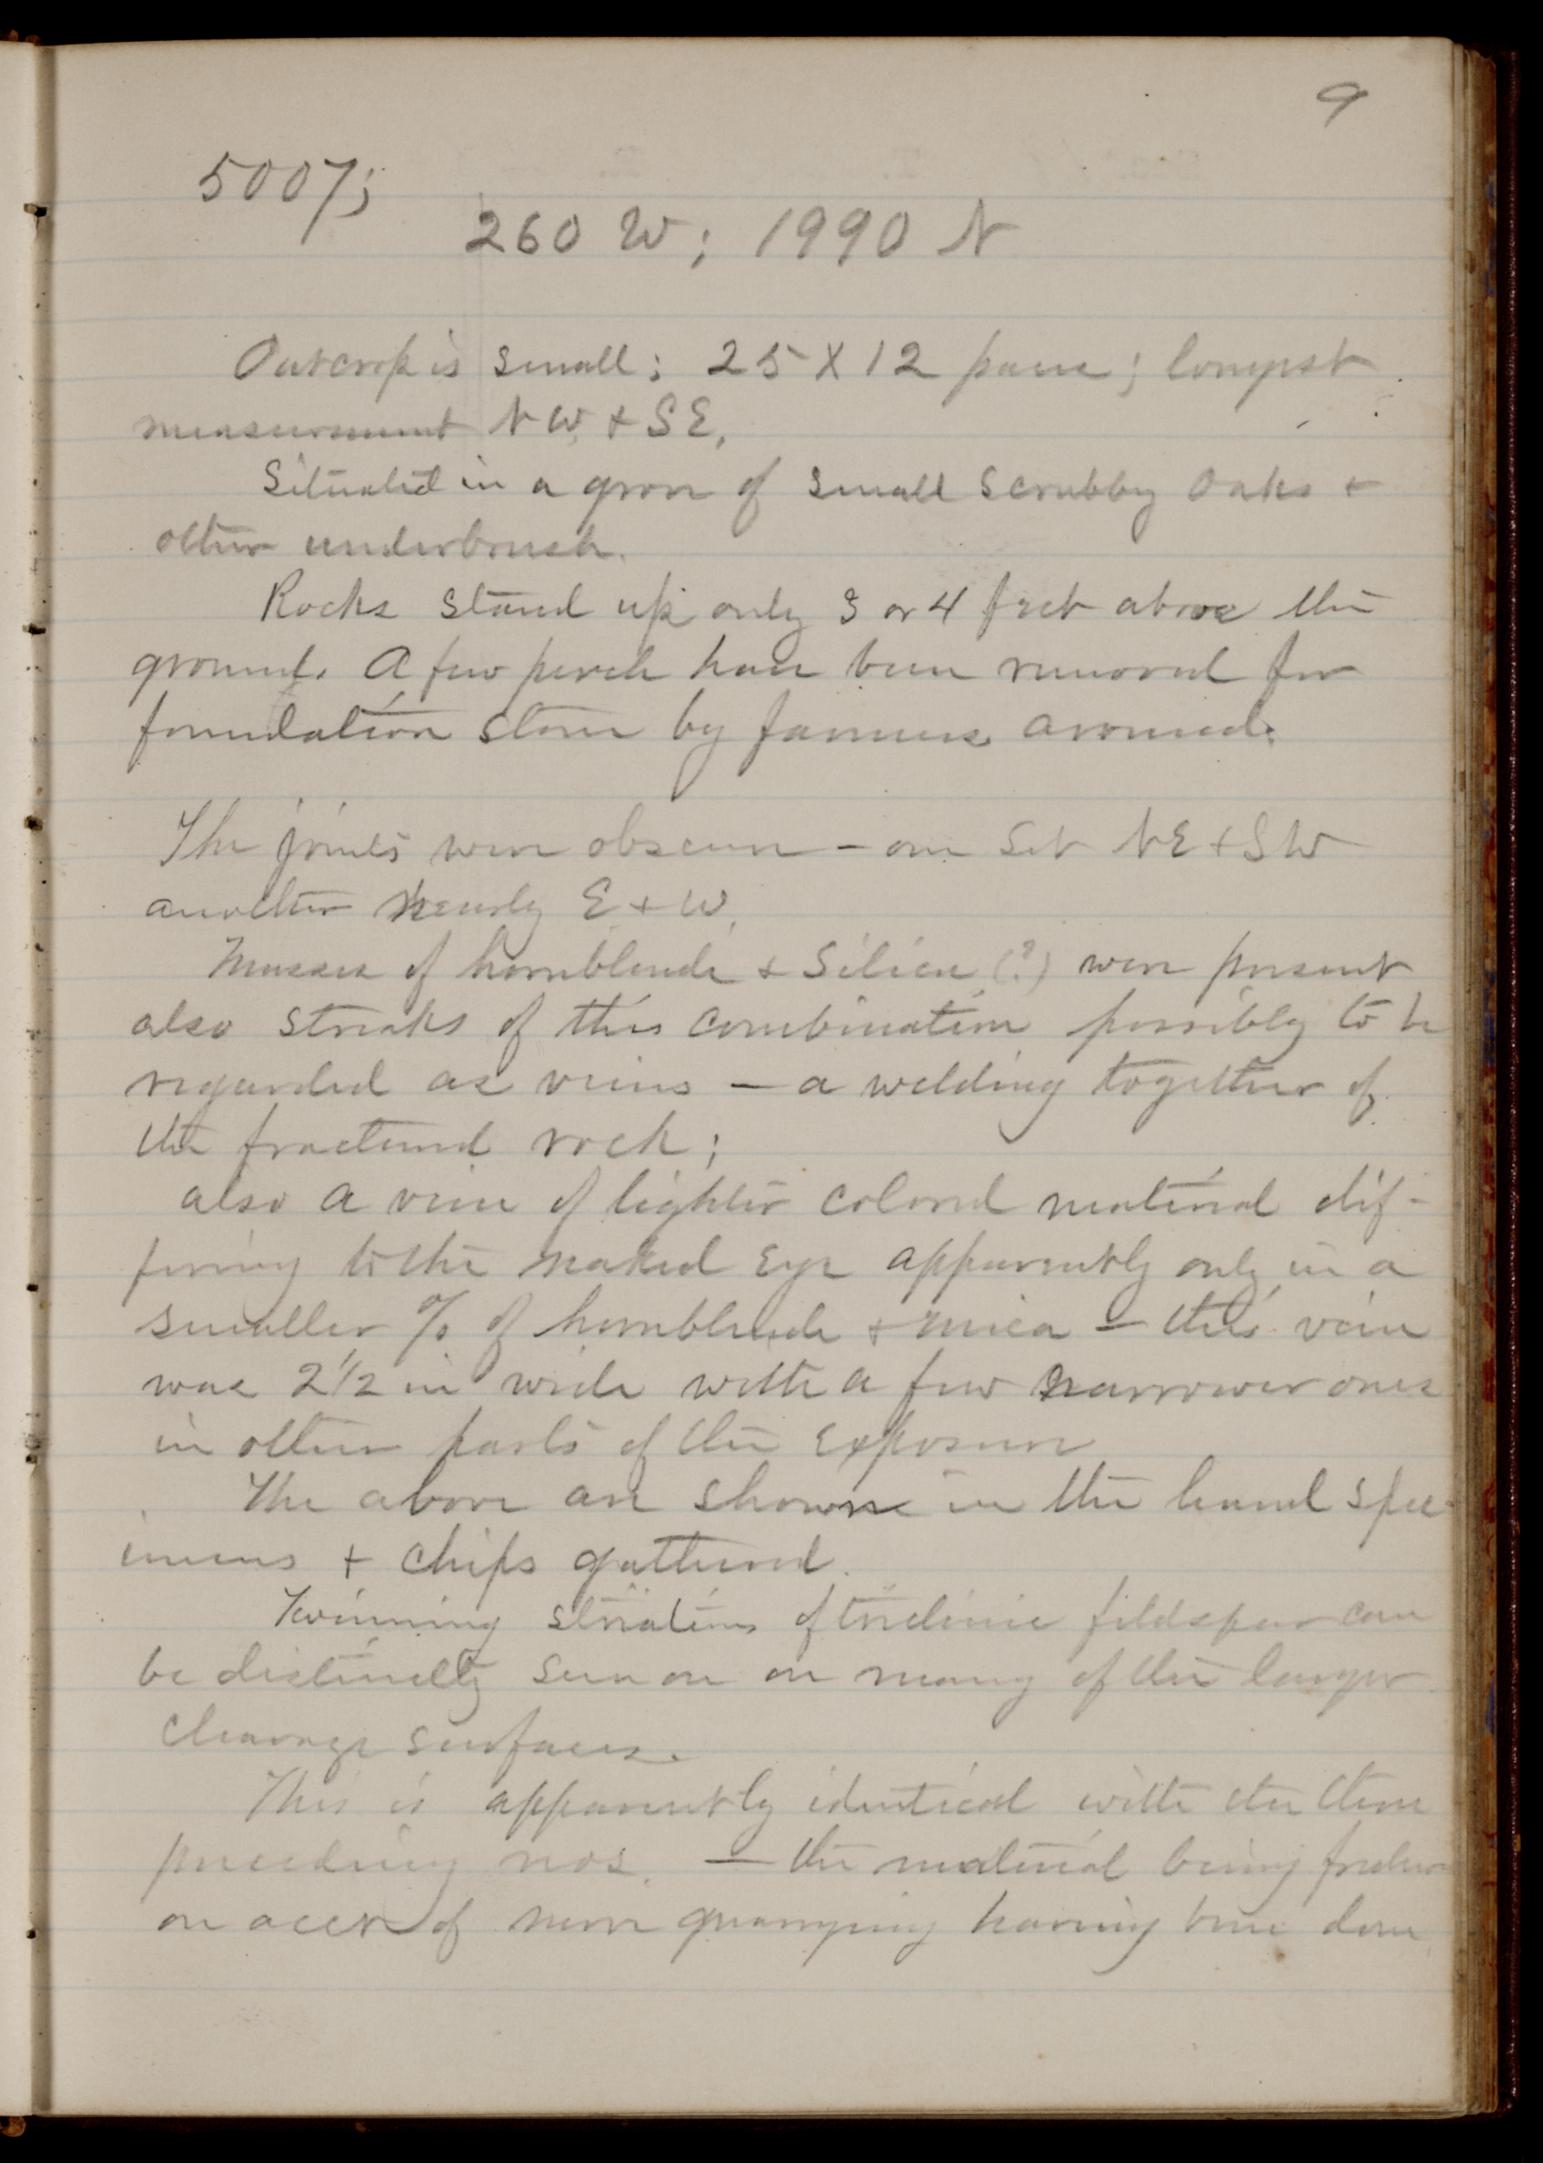 9
5007;
260 W; 1990 N
Outcrop is small; 25 X 12 paces; longest
measurement NW & SE.
Situated in a grove of small scrubby oaks &
other underbrush.
Rocks stand up only 3 or 4 feet above the
ground. A few perch have been removed for
foundation stone by farmers around.
The joints were obscure – one set NE & SW
another nearly E & W.
Masses of hornblende & silica (?) were present
also streaks of this combination possibly to be
regarded as veins – a welding together of
the fractured rock;
also a vein of lighter colored material dif-
fering to the naked eye apparently only in a
smaller % of hornblende & mica – this vein
was 2 1/2 in wide with a few narrower ones
in other parts of the exposure
The above are shown in the hand spec-
imens & chips gathered.
Twinning striations of triclinic feldspar can
be distinctly seen on on many of the larger
cleavage surfaces.
This is apparently identical with the three
preceding nos. – the material being fresher
on acct of more quarrying having been done